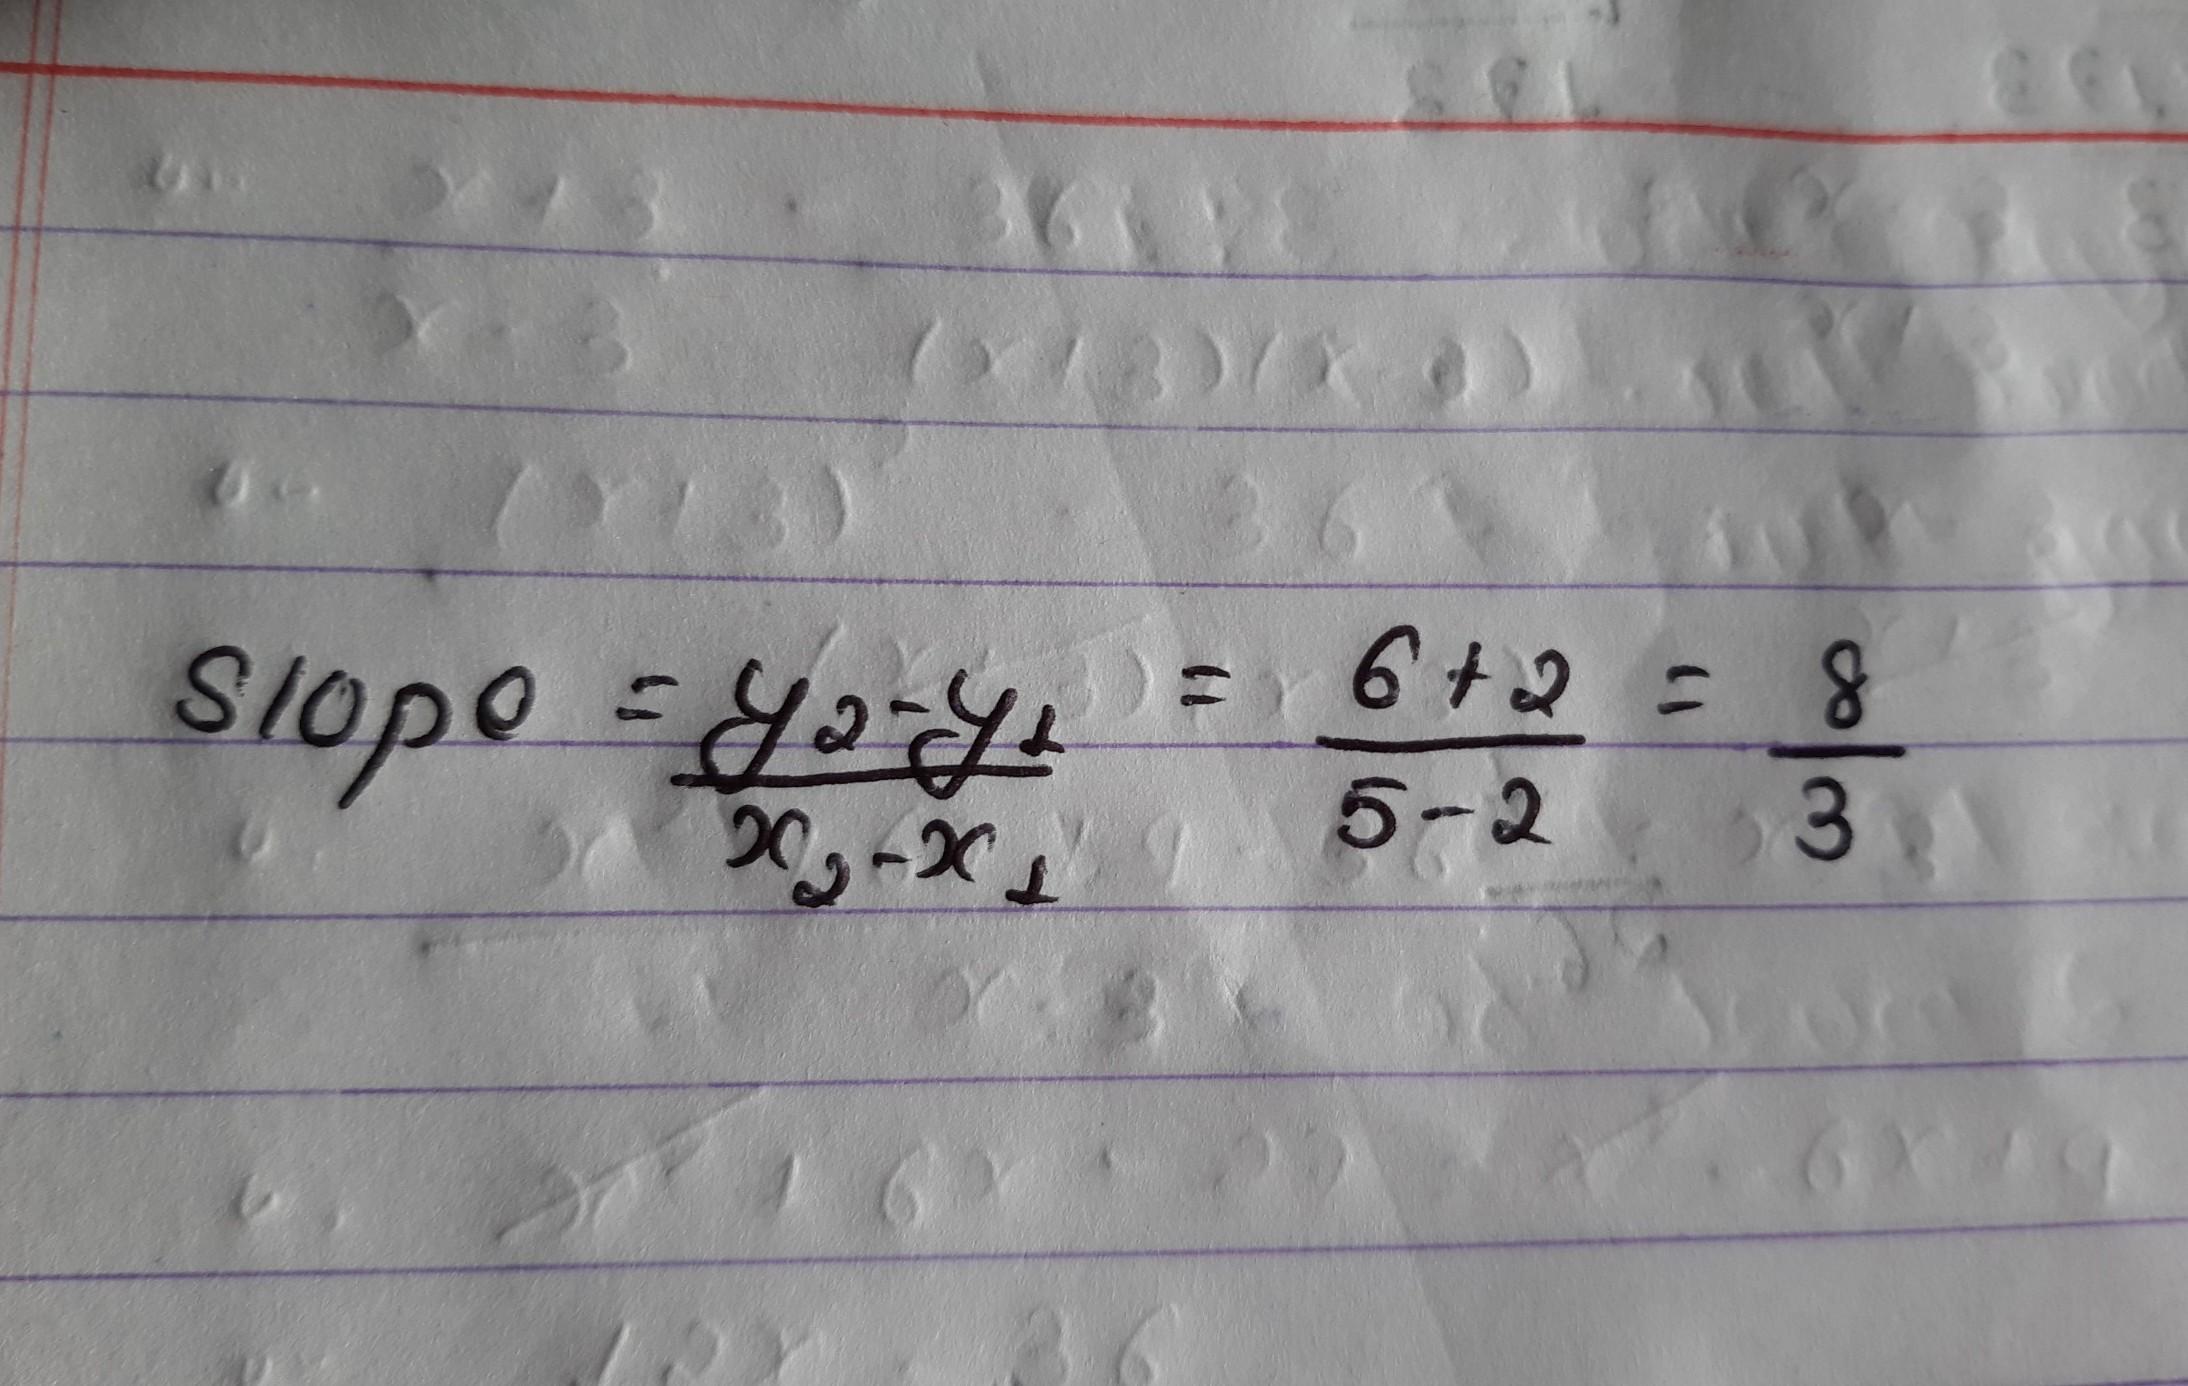 slope = y₂-y₁ / x₂-x₁ = 6+2 / 5-2 = 8 / 3